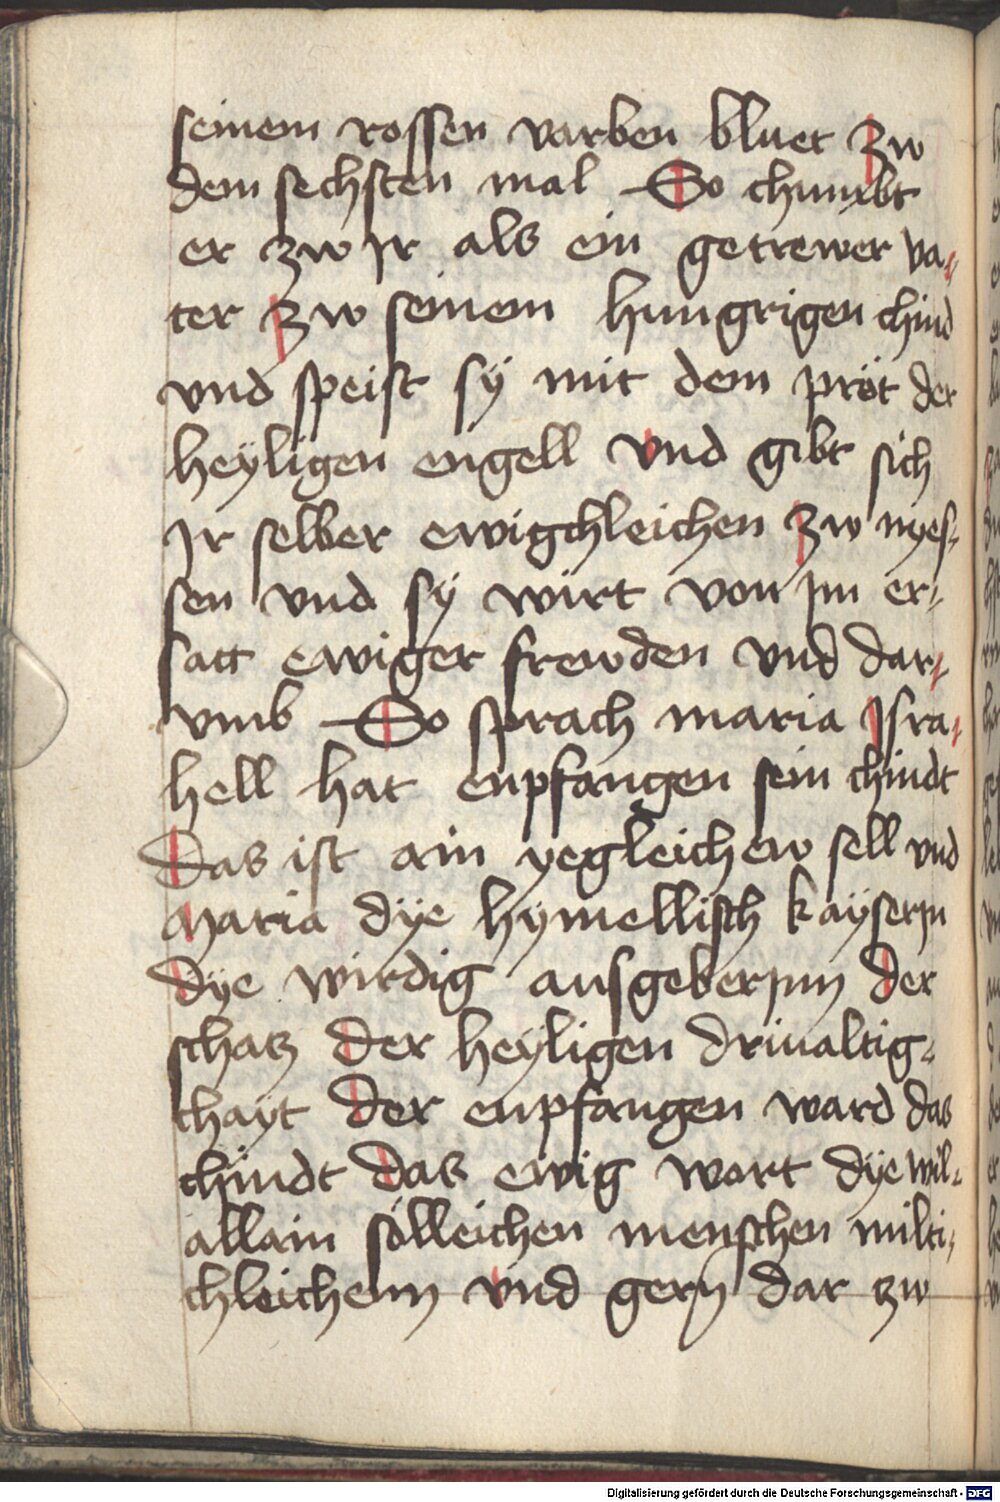 seinem rossen varben bluet zw
dem sechsten mal So chumbt
er zw Ir als ein getrewer va-
ter zw seinem hungrigen chind
vnd speist sÿ mit dem pröt der
heÿligen engell vnd gibt sich
Ir selber ewigchleichen zw nyes-
sen vnd sÿ wirt von Im er-
satt ewiger frewden vnd dar-
vmb So sprach maria Isra-
hell hat enpfangen sein chindt
Das ist ain yegleichew sell vnd
Maria dÿe hÿmellisch kaÿserin
dÿe wirdig ausgeberinn der
schatz der heÿligen driualtig-
chayt der enpfangen ward das
chindt das ewig wort dÿe wil-
allain sölleichen menschen milti-
chleichenn vnd gern dar zw
Digitalisierung gefördert durch die Deutsche Forschungsgemeinschaft - DFG